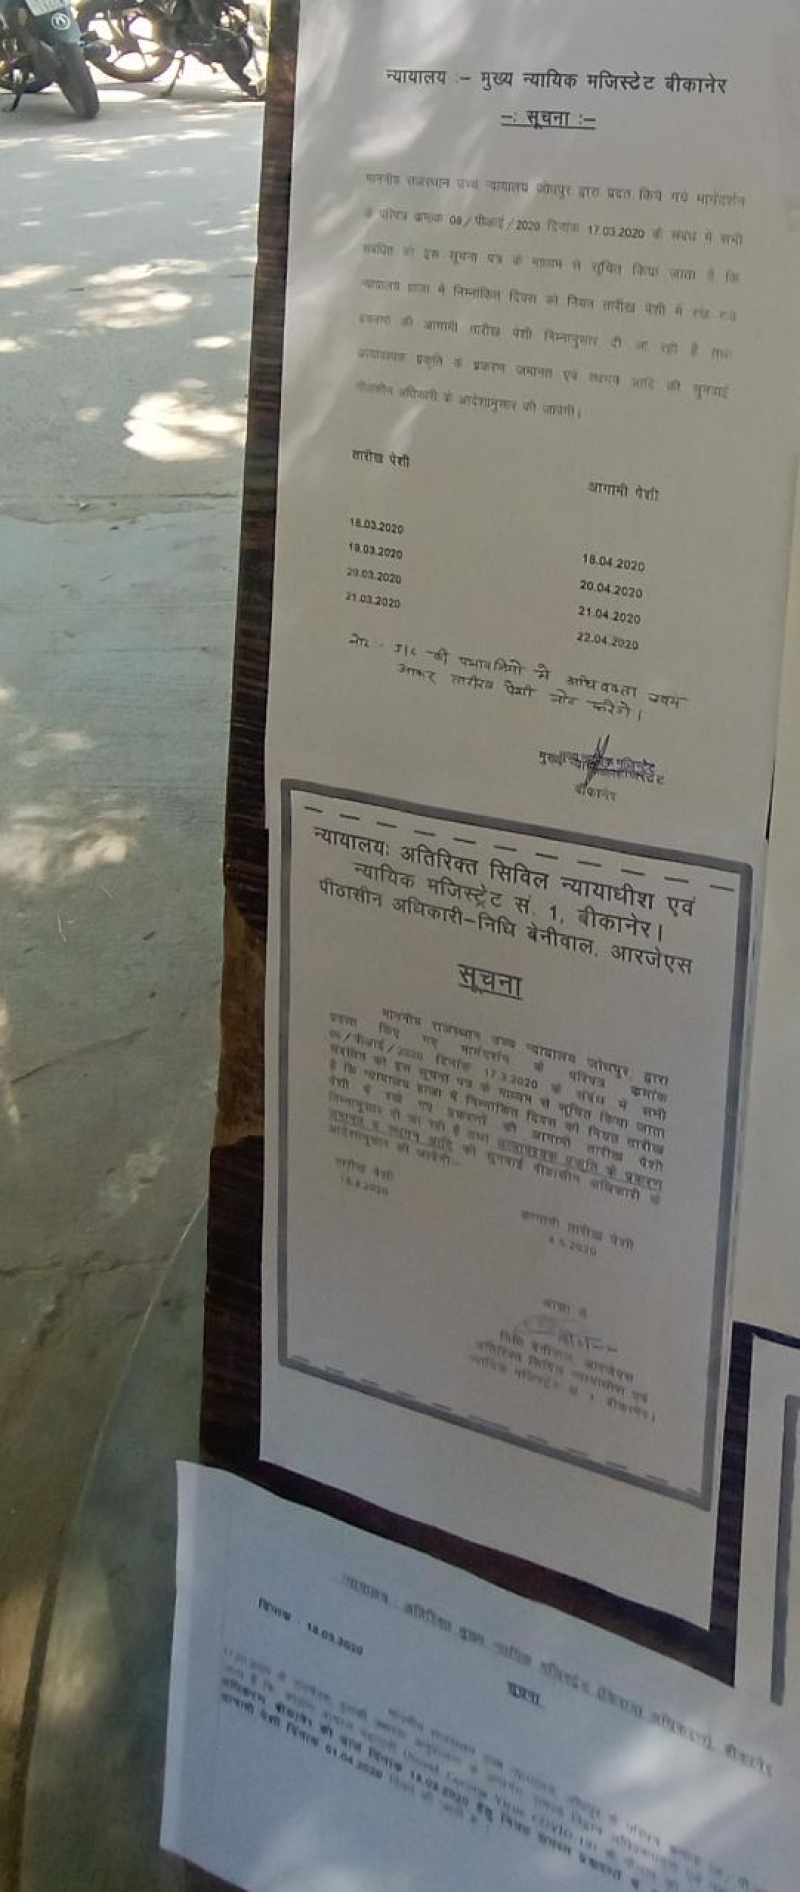 न्यायालय :- मुख्य न्यायिक मजिस्टेट बीकानेर
-: सूचना :-
माननीय राजस्थान उच्च न्यायालय जोधपुर द्वारा प्रदत किये गये मार्गदर्शन
के परिपत्र क्रमांक 09/पीआई/2020 दिनांक 17.03.2020 के संदर्भ में सभी
संबंधित को इस सूचना पत्र के माध्यम से सूचित किया जाता है कि
न्यायालय हाजा में निम्नांकित दिवस को नियत तारीख पेशी में रखे गये
प्रकरणों की आगामी तारीख पेशी निम्नानुसार दी जा रही है तथा
अत्यावश्यक प्रकृति के प्रकरण जमानत एवं स्थगन आदि की सुनवाई
पीठासीन अधिकारी के आदेशानुसार की जावेगी।
तारीख पेशी आगामी पेशी
18.03.2020 18.04.2020
19.03.2020 20.04.2020
20.03.2020 21.04.2020
21.03.2020 22.04.2020
नोट - J/C की पत्रावलियों में अधिवक्ता स्वयं
आकर तारीख पेशी नोट करेंगे।
मुख्य न्यायिक मजिस्टेट
बीकानेर
न्यायालयः अतिरिक्त सिविल न्यायाधीश एवं
न्यायिक मजिस्ट्रेट सं. 1, बीकानेर।
पीठासीन अधिकारी-निधि बेनीवाल, आरजेएस
सूचना
माननीय राजस्थान उच्च न्यायालय जोधपुर, द्वारा
प्रदत्त किए गए मार्गदर्शन के परिपत्र क्रमांक
09/पीआई/2020 दिनांक 17.3.2020 के संदर्भ में सभी
संबंधित को इस सूचना पत्र के माध्यम से सूचित किया जाता
है कि न्यायालय हाजा में निम्नांकित दिवस को नियत तारीख
पेशी में रखे गए प्रकरणों की आगामी तारीख पेशी
निम्नानुसार दी जा रही है तथा अत्यावश्यक प्रकृति के प्रकरण
जमानत व स्थगन आदि की सुनवाई पीठासीन अधिकारी के
आदेशानुसार की जावेगी:-
तारीख पेशी आगामी तारीख पेशी
18.3.2020 4.5.2020
आज्ञा से
निधि बेनीवाल, आरजेएस
अतिरिक्त सिविल न्यायाधीश एवं
न्यायिक मजिस्ट्रेट सं. 1, बीकानेर।
न्यायालय : अतिरिक्त मुख्य न्यायिक मजिस्ट्रेट (किराया अधिकरण), बीकानेर
दिनांक : 18.03.2020
सूचना
माननीय राजस्थान उच्च न्यायालय, जोधपुर के परिपत्र क्रमांक
अधिकरण बीकानेर की आज दिनांक 18.03.2020 हेतु नियत समस्त प्रकरणों
आगामी पेशी दिनांक 01.04.2020